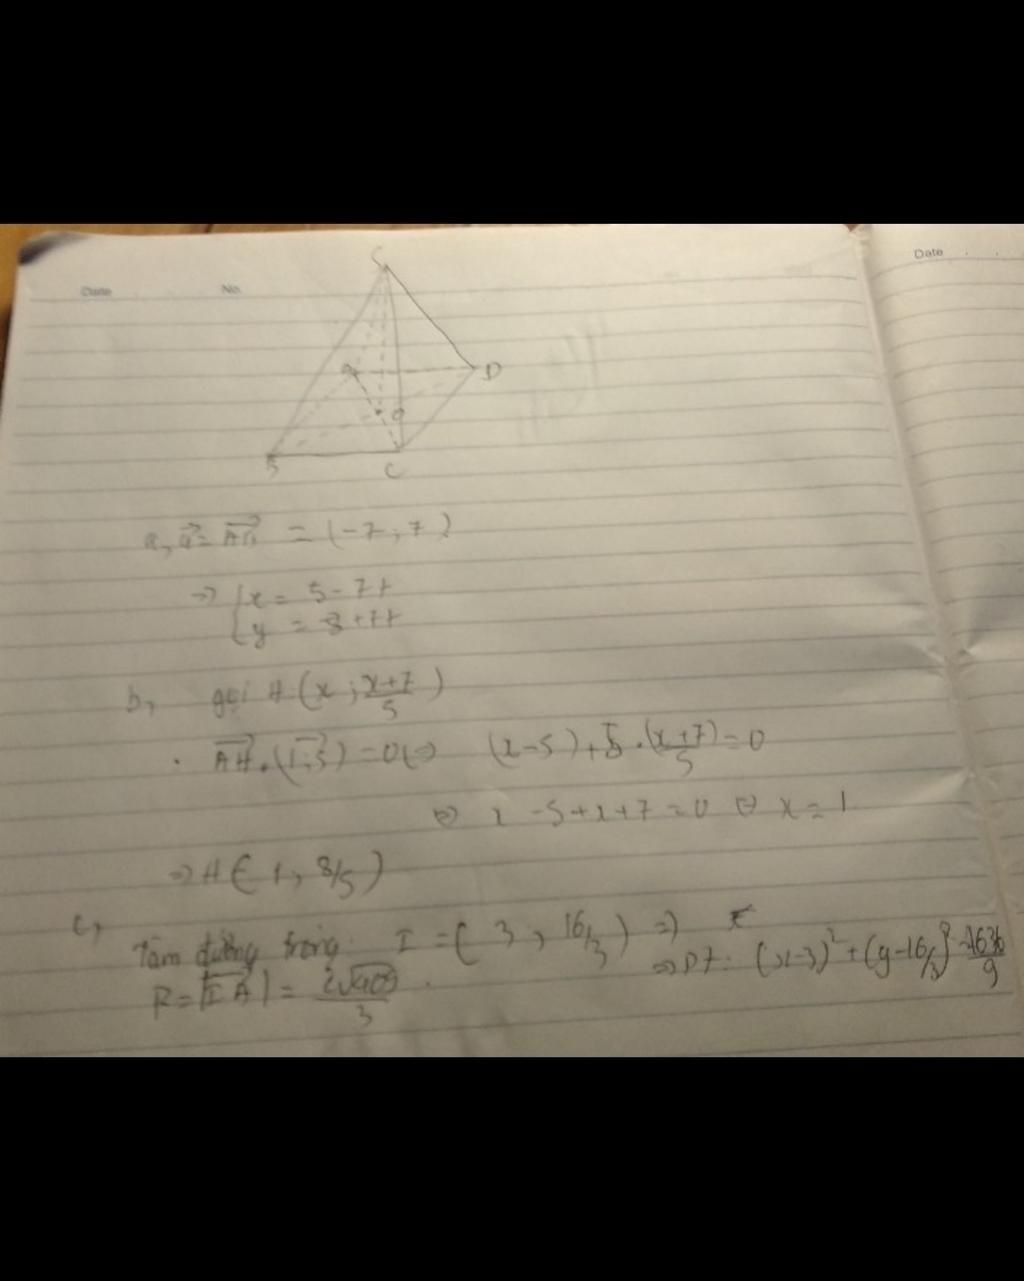 Date No. Date
S
D
O
B C
a, u⃗ = AB⃗ = (-7; 7)
=> { x = 5 - 7t
{ y = 3 + 7t
b, gọi H (x; x+7/5)
. AH⃗ . (1; 5) = 0 <=> (x-5) + 5 . (x+7)/5 = 0
<=> x - 5 + x + 7 = 0 <=> x = 1
=> H ( 1, 8/5 )
c,
Tâm đường tròng I = ( 3, 16/3 ) =>
R = |IA⃗| = /3 . => PT: (x-3)² + (y-16/3)² = 1636/9